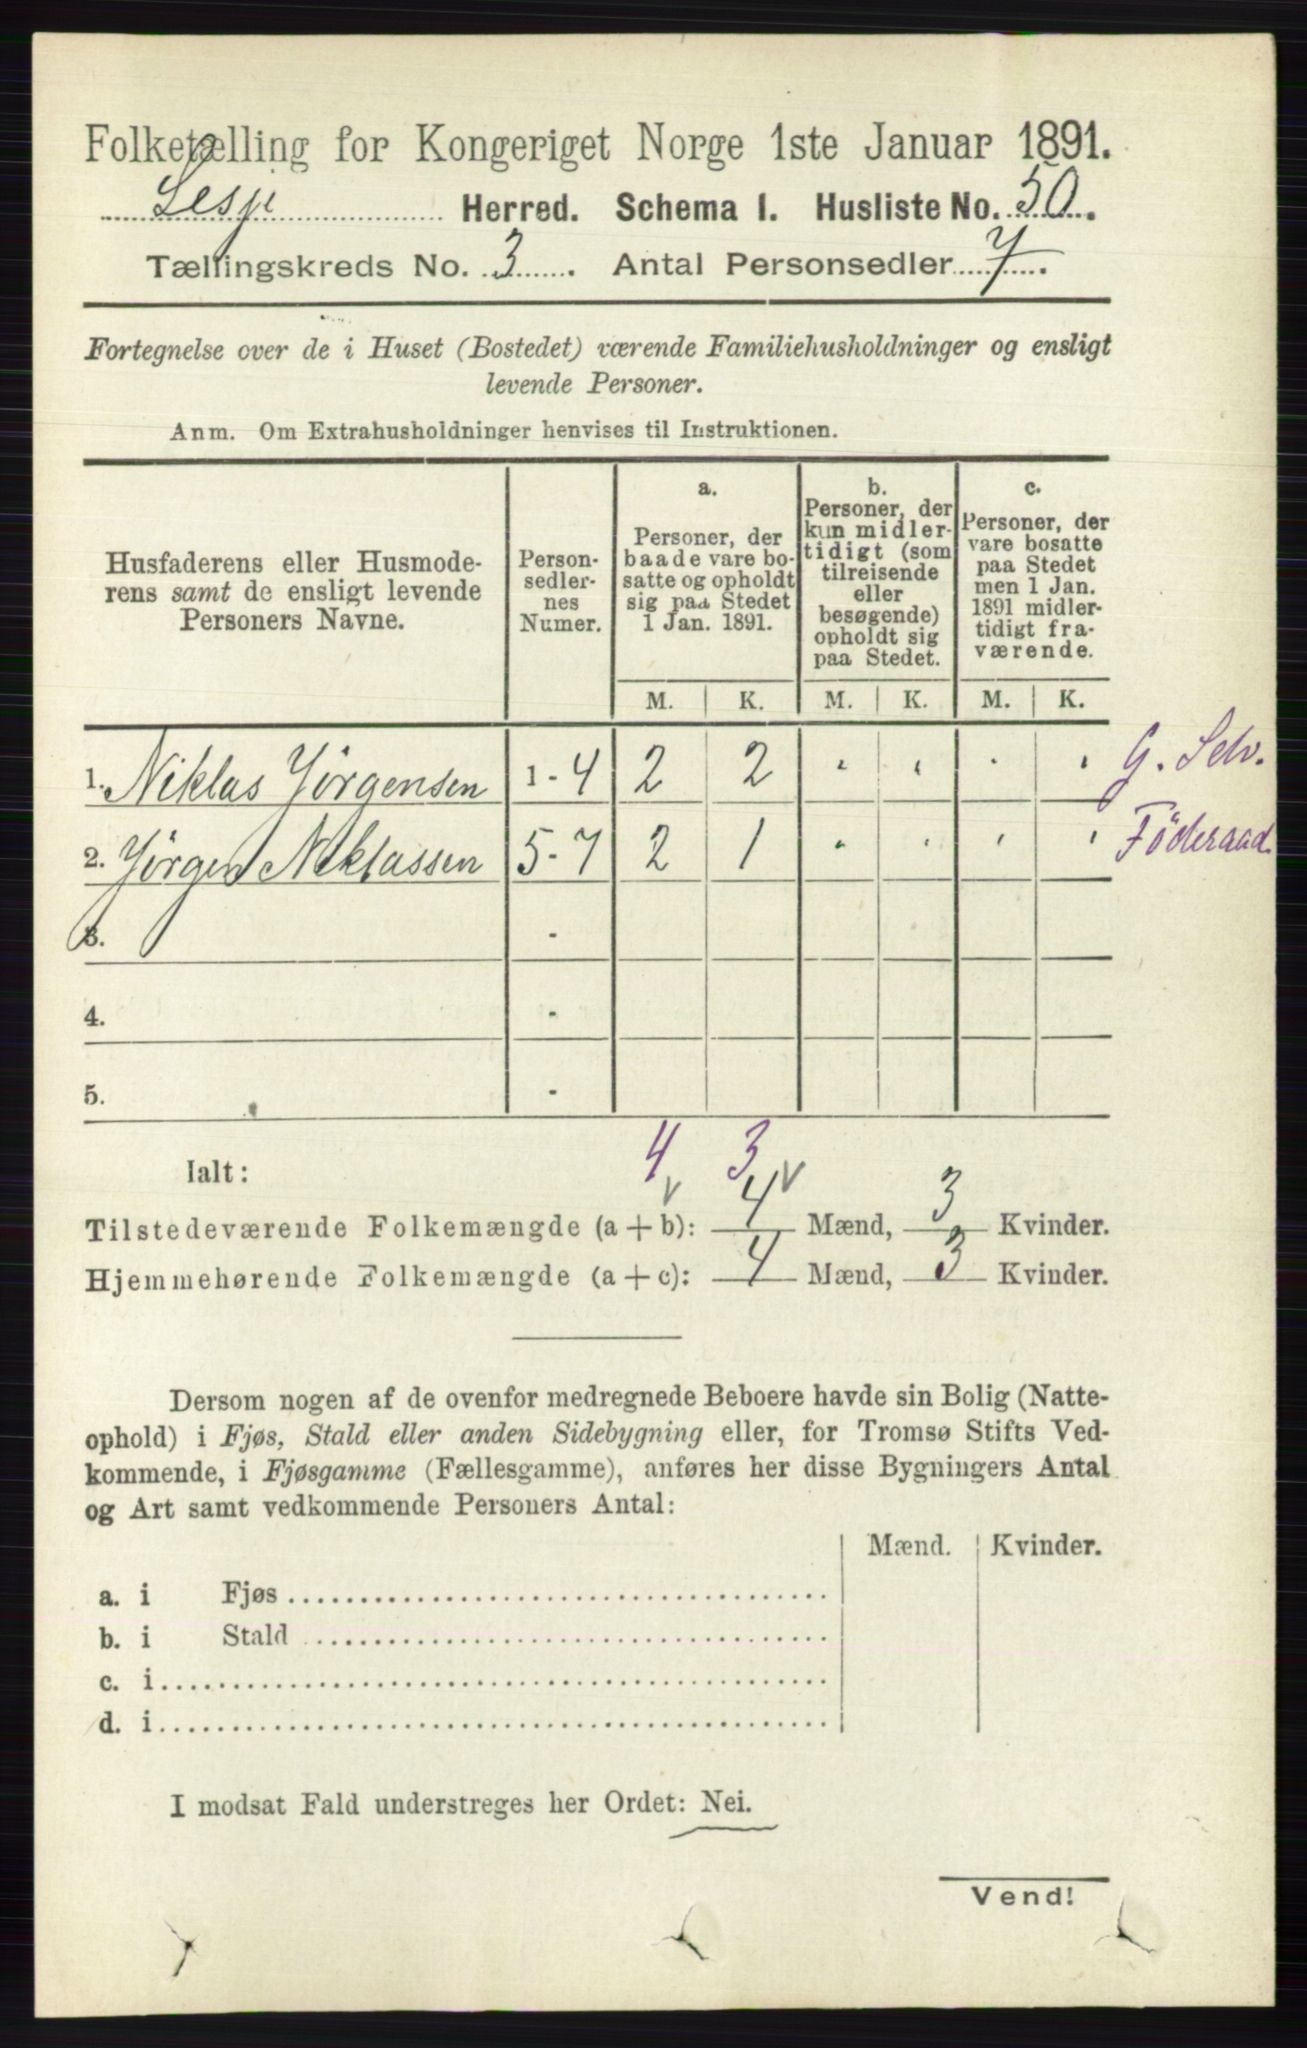 Folketælling for Kongeriget Norge 1ste Januar 1891.
Lesje Herred. Schema I. Husliste No. 50.
Tællingskreds No. 3. Antal Personsedler 7.
Fortegnelse over de i Huset (Bostedet) værende Familiehusholdninger og ensligt
levende Personer.
Anm. Om Extrahusholdninger henvises til Instruktionen.
Husfaderens eller Husmode-
rens samt de ensligt levende
Personers Navne.
Person-
sedler-
nes
Numer.
a.
Personer, der
baade vare bo-
satte og opholdt
sig paa Stedet
1 Jan. 1891.
b.
Personer, der
kun midler-
tidigt (som
tilreisende
eller
besøgende)
opholdt sig
paa Stedet.
c.
Personer, der
vare bosatte
paa Stedet
men 1 Jan.
1891 midler-
tidigt fra-
værende.
M. K. M. K. M. K.
1. Niklas Jörgensen 1 - 4 2 2 " " " " G. Selv.
2. Jörgen Niklassen 5 - 7 2 1 " " " " Föderaad.
3. -
4. -
5. -
4 3
Ialt:
Tilstedeværende Folkemængde (a + b): 4 Mænd, 3 Kvinder.
Hjemmehørende Folkemængde (a + c): 4 Mænd, 3 Kvinder.
Dersom nogen af de ovenfor medregnede Beboere havde sin Bolig (Natte-
ophold) i Fjøs, Stald eller anden Sidebygning eller, for Tromsø Stifts Ved-
kommende, i Fjøsgamme (Fællesgamme), anføres her disse Bygningers Antal
og Art samt vedkommende Personers Antal:
Mænd. Kvinder.
a. i Fjøs
b. i Stald
c. i
d. i
I modsat Fald understreges her Ordet: Nei.
Vend!